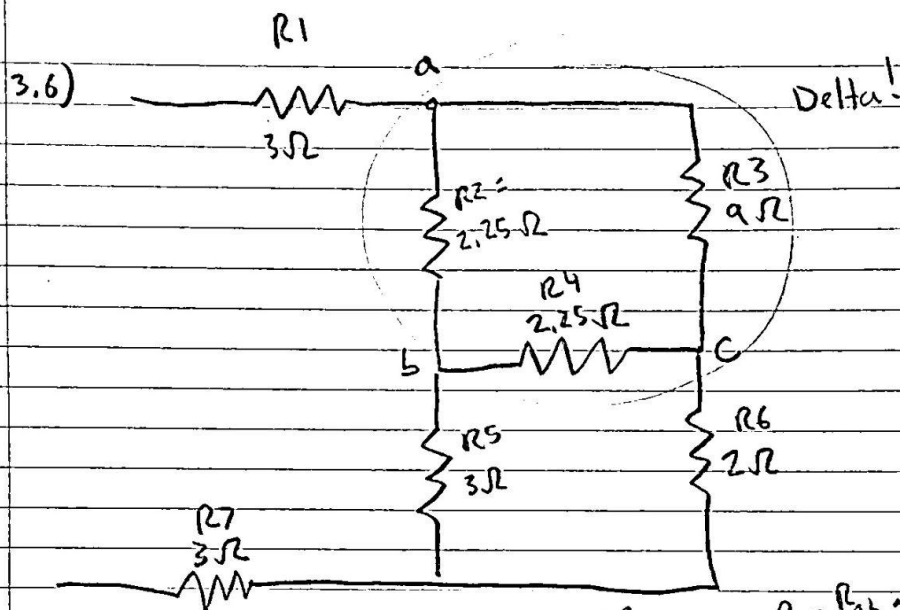 R1
a
3.6)
Delta!
3Ω
R2=
2.25Ω
R3
9Ω
R4
2.25Ω
b
C
R5
3Ω
R6
2Ω
R7
3Ω